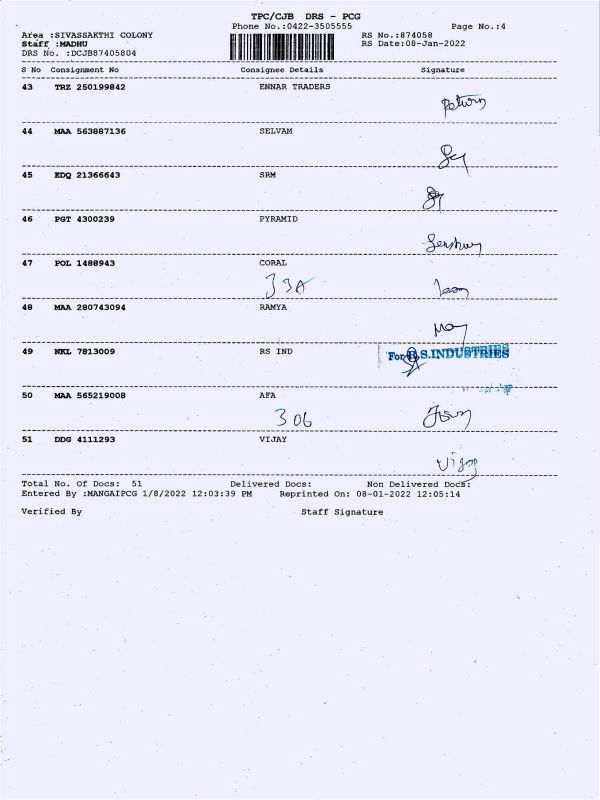 TPC/CJB DRS - PCG
Phone No.:0422-3505555 Page No.:4
Area :SIVASSAKTHI COLONY RS No.:874058
Staff :MADHU RS Date:08-Jan-2022
DRS No. :DCJB87405804
S No Consignment No Consignee Details Signature
43 TRZ 250199842 ENNAR TRADERS
Return
44 MAA 563887136 SELVAM
45 EDQ 21366643 SRM
46 PGT 4300239 PYRAMID
47 POL 1488943 CORAL
33A
48 MAA 280743094 RAMYA
49 NKL 7813009 RS IND For R.S.INDUSTRIES
50 MAA 565219008 AFA
306
51 DDG 4111293 VIJAY
Vijay
Total No. Of Docs: 51 Delivered Docs: Non Delivered Docs:
Entered By :MANGAIPCG 1/8/2022 12:03:39 PM Reprinted On: 08-01-2022 12:05:14
Verified By Staff Signature